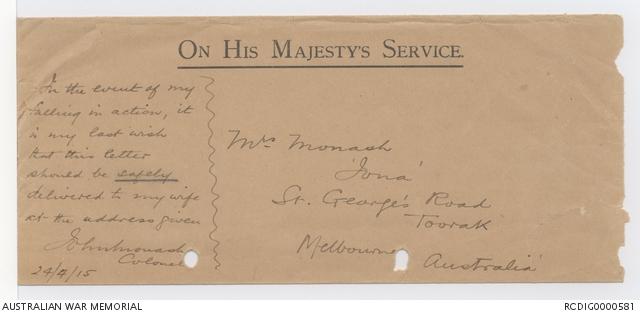 ON HIS MAJESTY'S SERVICE.
In the event of my
falling in action, it
is my last wish
that this letter
should be safely
delivered to my wife
at the address given
John Monash
Colonel
24/4/15
Mrs Monash
'Iona'
St. George's Road
Toorak
Melbourne
Australia
AUSTRALIAN WAR MEMORIAL
RCDIG0000581